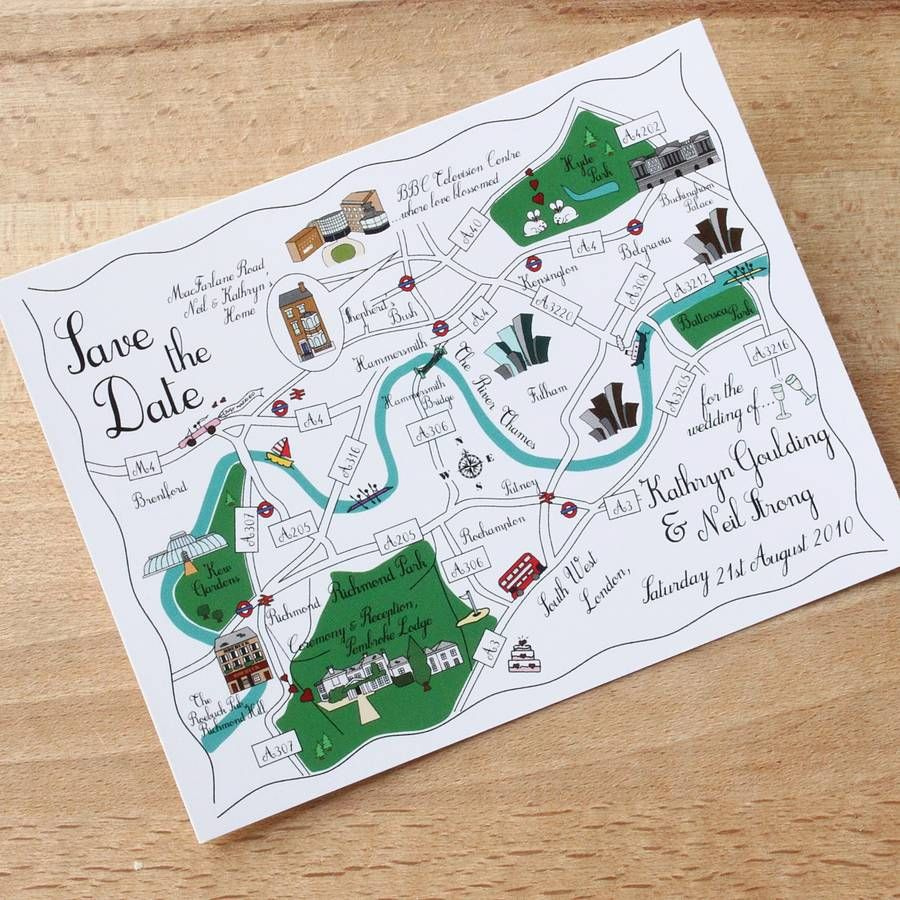 Save
the
Date
MacFarlane Road,
Neil & Kathryn's
Home
BBC Television Centre
...where love blossomed
Hyde
Park
A4202
Buckingham
Palace
A40
A4
Belgravia
Kensington
A3220
A308
A3212
Battersea Park
A3216
Shepherd's
Bush
A4
Hammersmith
Hammersmith
Bridge
The River Thames
Fulham
A306
A3205
A4
M4
Brentford
A316
N
W
E
S
Putney
A3
A307
A205
A205
Roehampton
A306
Kew
Gardens
Richmond
Richmond Park
Ceremony & Reception,
Pembroke Lodge
A3
South West
London,
The
Roebuck Pub,
Richmond Hill
A307
for the
wedding of...
Kathryn Goulding
& Neil Strong
Saturday 21st August 2010